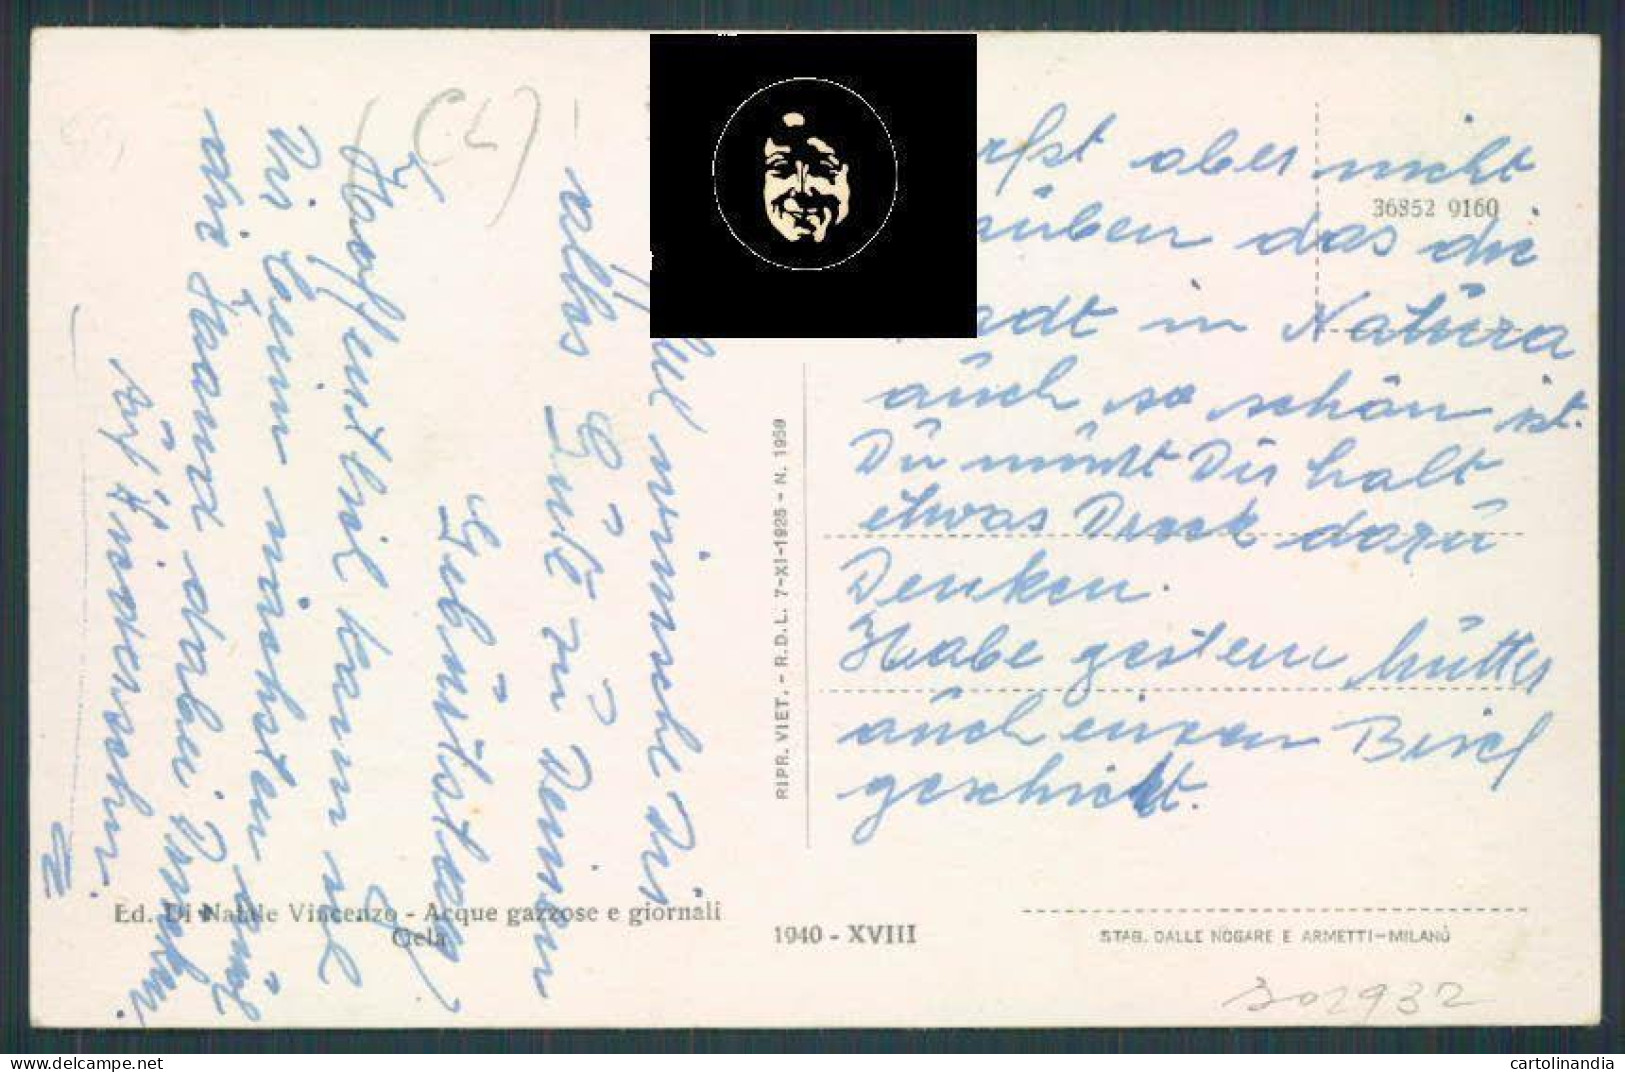 wünsche Dir
alles Gute zu Deinem
Geburtstag
Hoffentlich kann ich
Dir beim nächsten auch
die Hand dabei Drücken.
auf Wiedersehn.
rfst aber nicht
auben das die
adt in Natura
auch so schön ist.
Du mußt Dir halt
etwas Dreck dazu
Denken.
Habe gestern Mutter
auch einen Brief
geschickt.
36852 9160
RIPR. VIET. - R.D.L. 7-XI-1925 - N. 1950
Ed. Di Natale Vincenzo - Acque gazzose e giornali
Gela
1940 - XVIII
STAB. DALLE NOGARE E ARMETTI-MILANO
302932
cartolinandia